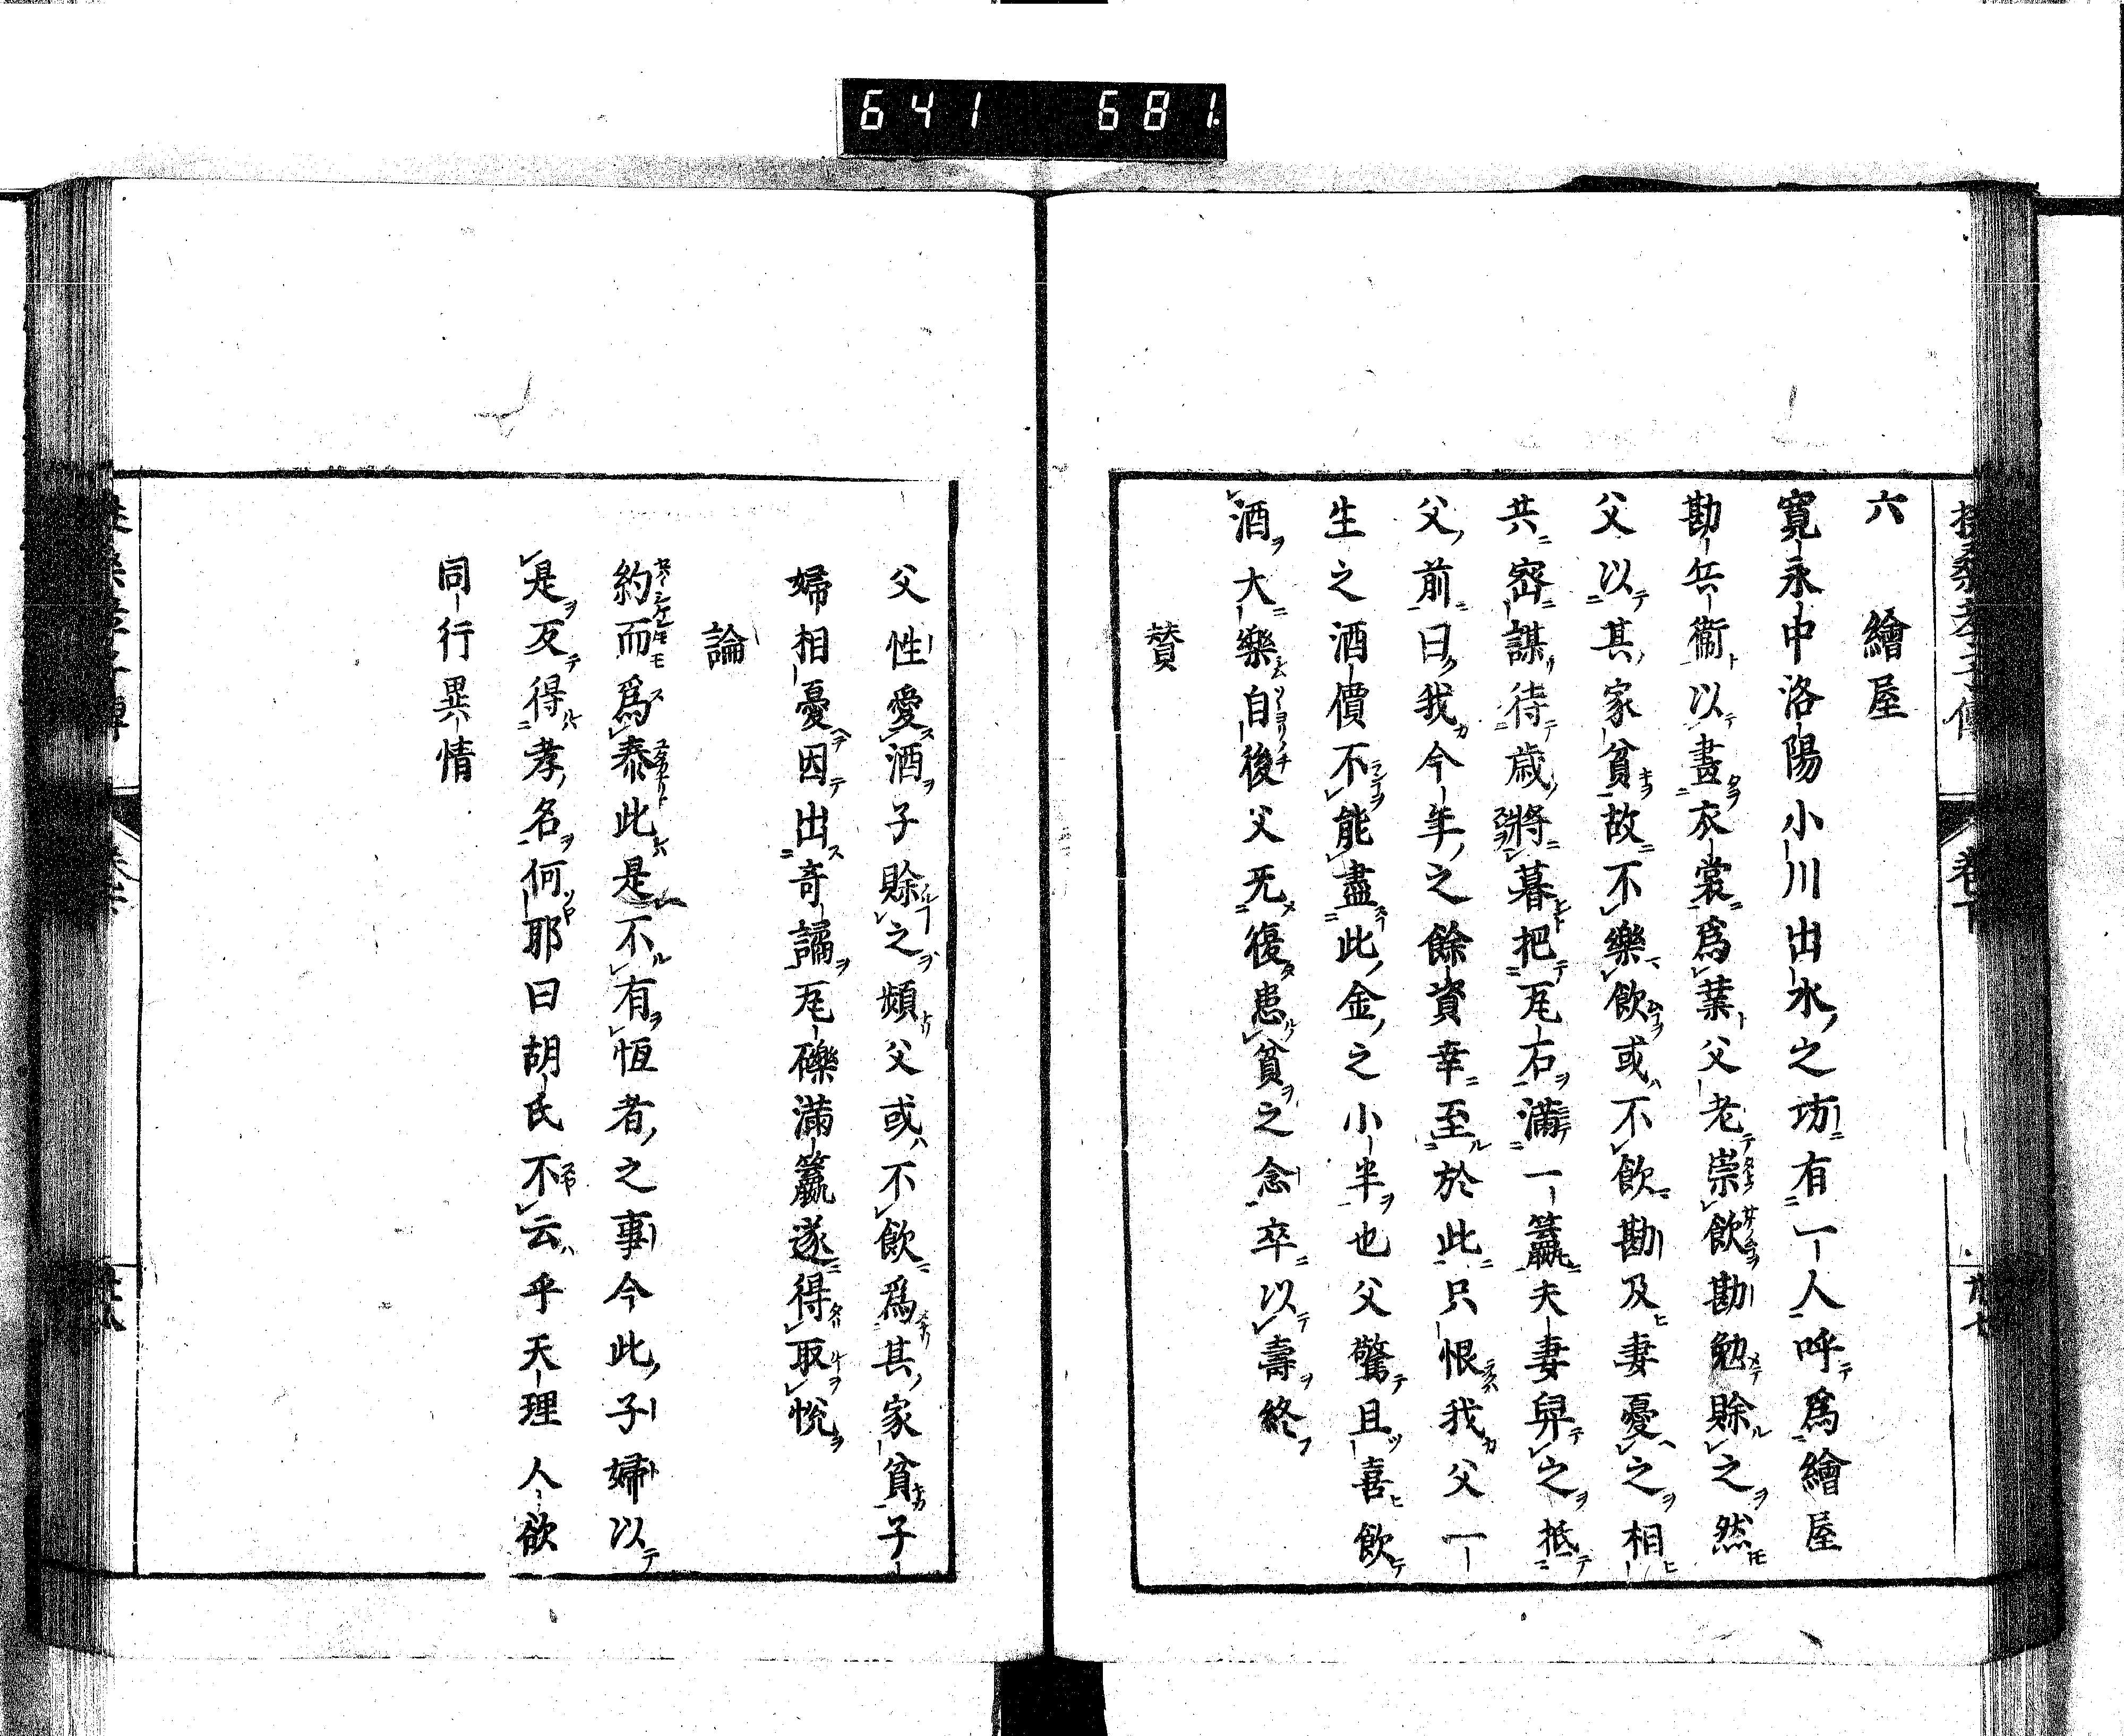 641 681.
六 繪屋
寛永中洛陽小川出水之坊有一人呼爲繪屋
勘兵衞以畫衣裳爲葉父老崇飮勘勉賖之然
父以其家貧故不樂飮或不飮勘及妻憂之相
共密謀待歳將暮把瓦石滿一籯夫妻舁之抵
父前曰我今年之餘資幸至於此只恨我父一
生之酒價不能盡此金之小半也父驚且喜飮
酒大樂自後父无復患貧之念卒以壽終
賛
父性愛酒子賖之頻父或不飮爲其家貧子
婦相憂因出奇譎瓦礫滿籯遂得取悅
論
約而爲泰此是不有恆者之事今此子婦以
是反得孝名何耶曰胡氏不云乎天理人欲
同行異情